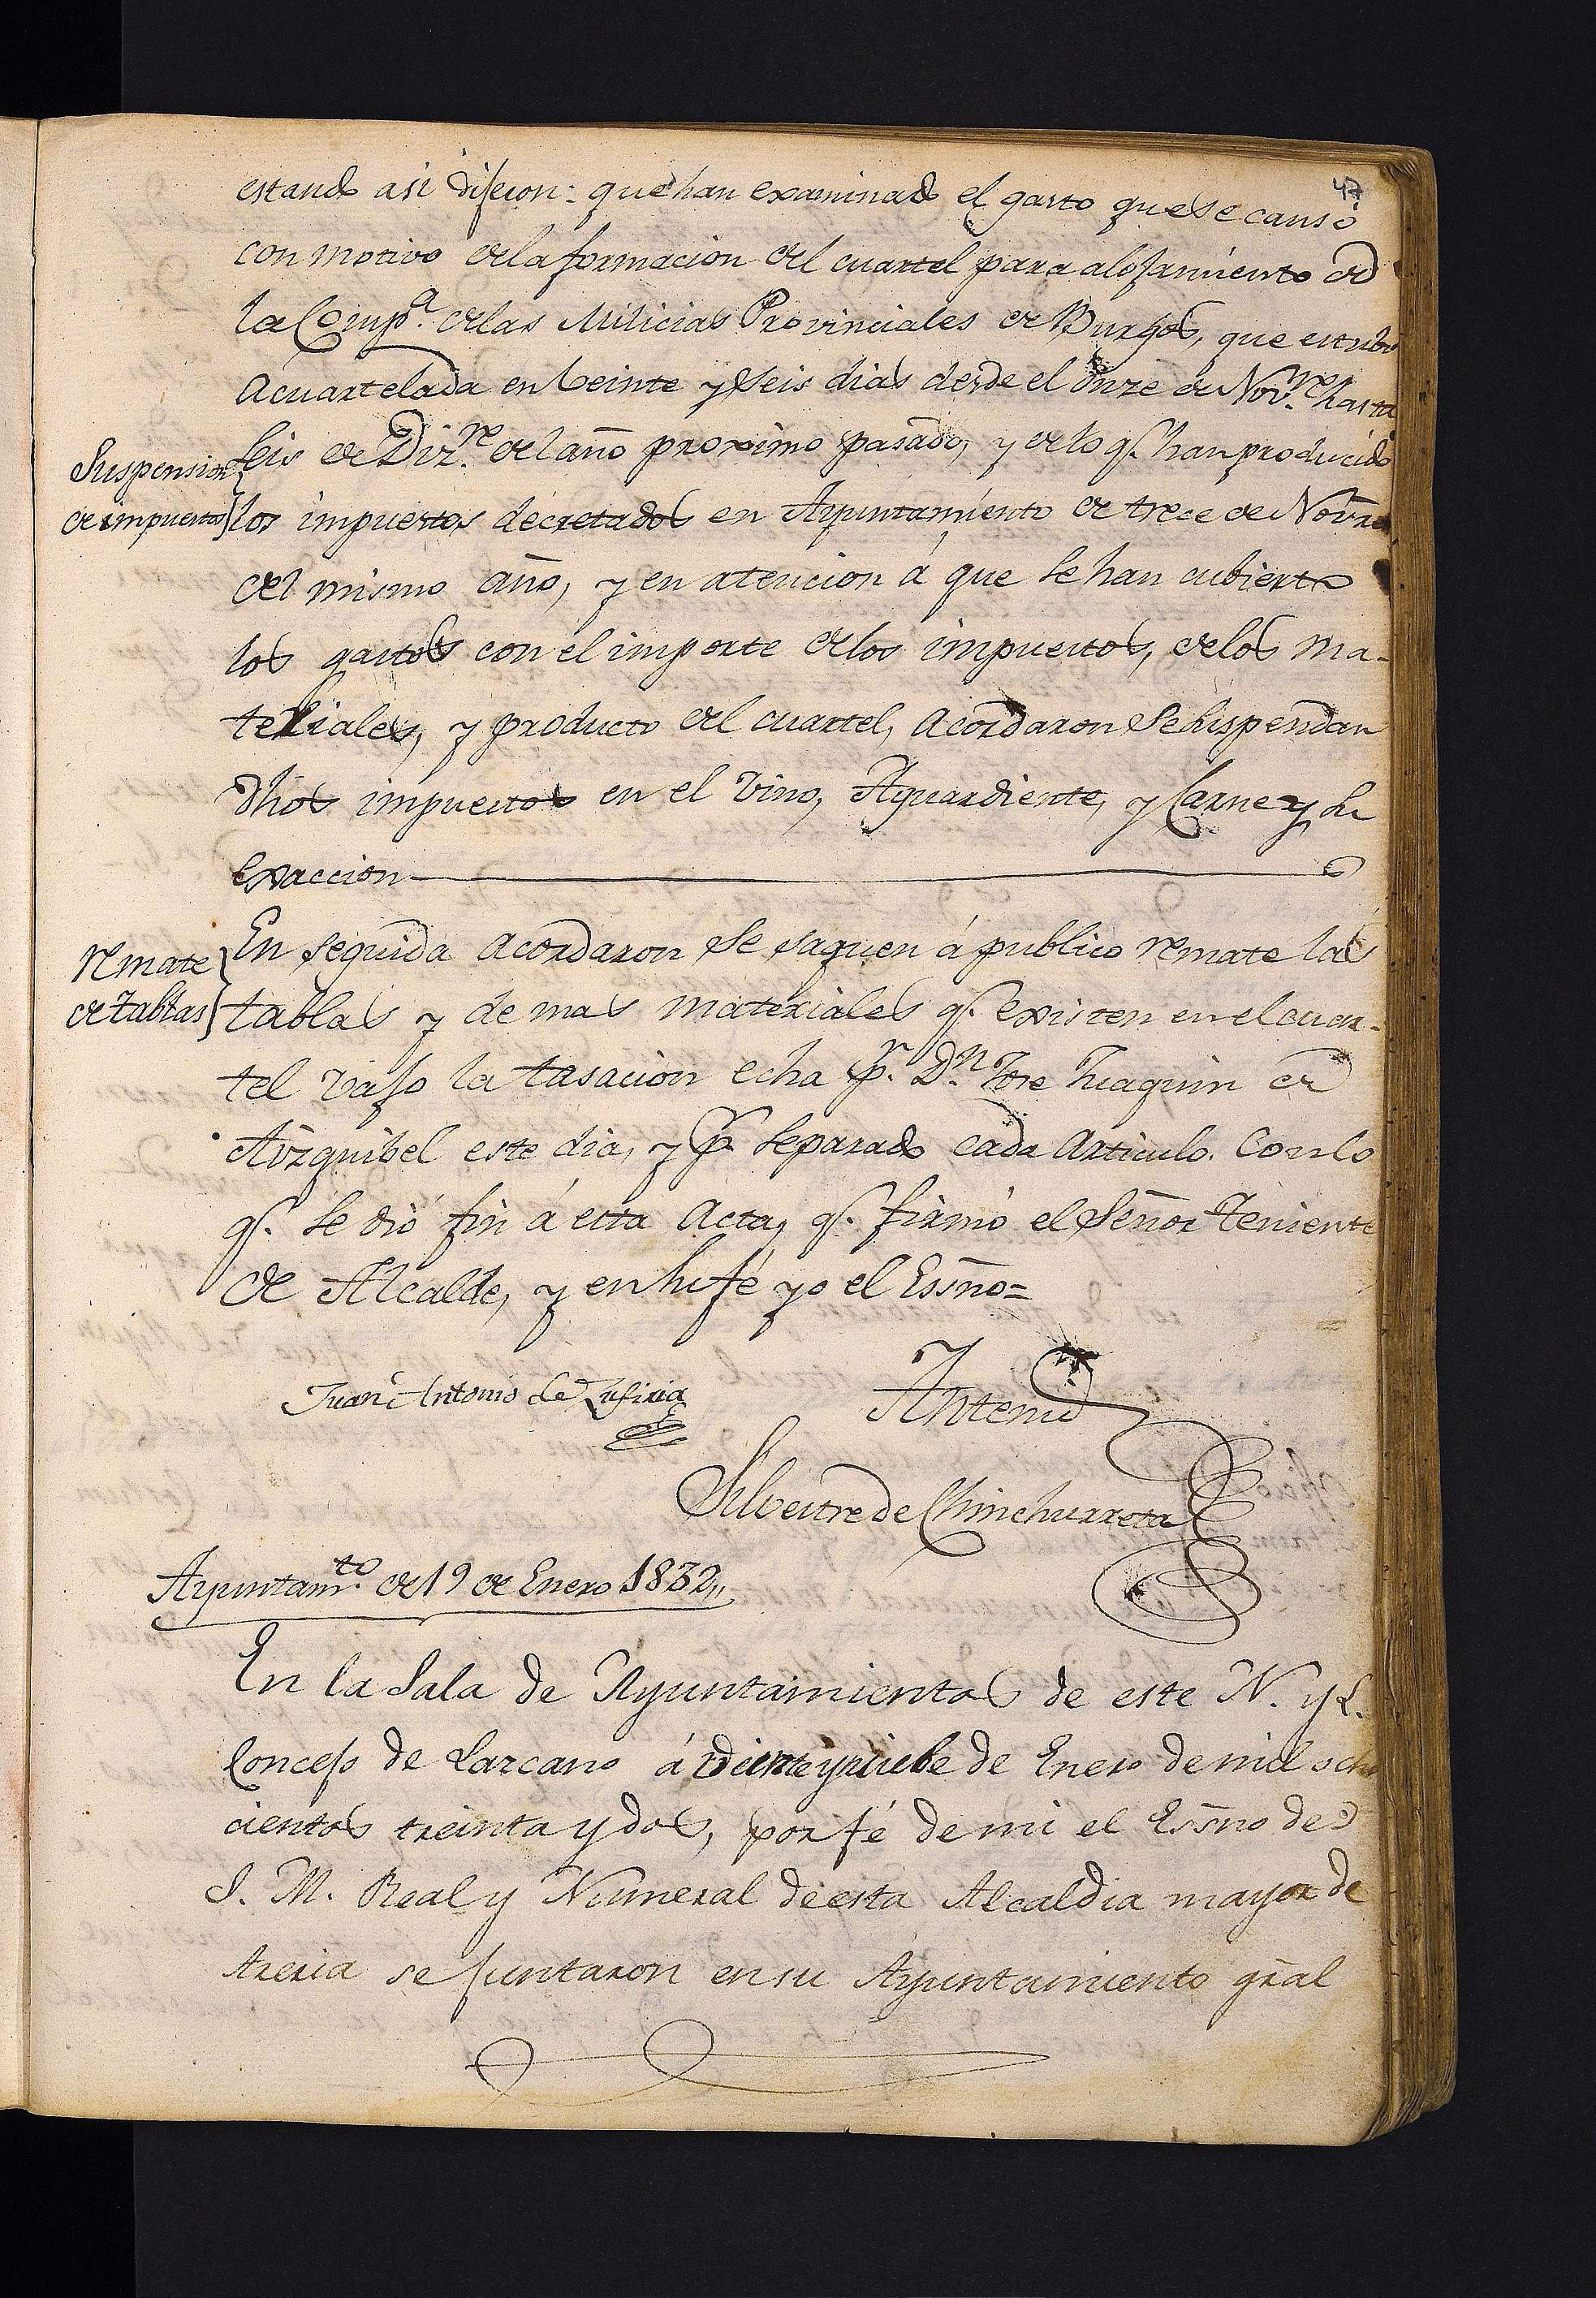 47
estando asi dijeron: que han examinado el gasto que se causó
con motivo de la formacion del cuartel para alojamiento de
la Compª. de las Milicias Provinciales de Burgos, que estubo
Acuartelada en beinte y seis dias desde el onze de Nov.re hasta
Suspension
de impuestos
seis de Diz.re del año proximo pasado, y de lo q.e han producido
los impuestos decretados en Ayuntamiento de trece de Novre
del mismo año, y en atencion á que se han cubierto
los gastos con el importe de los impuestos, de los ma-
teriales, y producto del cuartel, Acordaron se suspendan
dhos impuestos en el vino, Aguardiente, y Carne y su
exaccion
remate
de tablas
En seguida Acordaron se saquen á publico remate las
tablas y demas materiales q.e existen en el cuar-
tel vajo la tasacion echa p.r D.n Jose Juaquin de
Aizquibel este dia, y p.r separado cada Articulo. Con lo
q.e se dió fin á esta Acta, q.e firmó el Señor Teniente
de Alcalde, y en su fé yo el Essno=
Juan Antonio de Zufiria
Antemi
Silvestre de Chinchurreta
Ayuntam.to de 19 de Enero 1832,,
En la Sala de Ayuntamientos de este N. y L.
Concejo de Lazcano á diez y nuebe de Enero de mil ocho
cientos treinta y dos, por fé de mi el Essno de
S. M. Real y Numeral de esta Alcaldia mayor de
Areria se juntaron en su Ayuntamiento gral